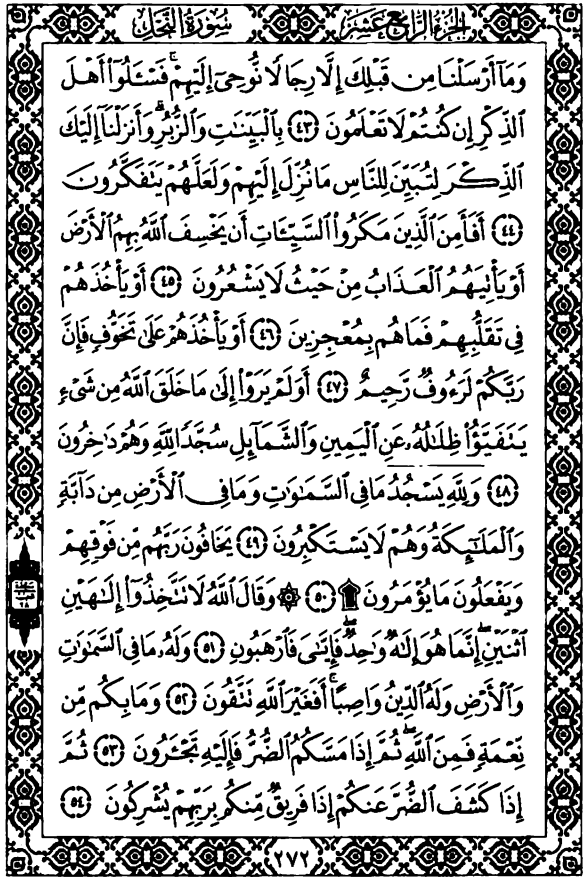 الجزء الرابع عشر
سورة النحل
وَمَآ أَرْسَلْنَا مِن قَبْلِكَ إِلَّا رِجَالًا نُّوحِىٓ إِلَيْهِمْ ۚ فَسْـَٔلُوٓا۟ أَهْلَ
ٱلذِّكْرِ إِن كُنتُمْ لَا تَعْلَمُونَ ﴿٤٣﴾ بِٱلْبَيِّنَـٰتِ وَٱلزُّبُرِ ۗ وَأَنزَلْنَآ إِلَيْكَ
ٱلذِّكْرَ لِتُبَيِّنَ لِلنَّاسِ مَا نُزِّلَ إِلَيْهِمْ وَلَعَلَّهُمْ يَتَفَكَّرُونَ
﴿٤٤﴾ أَفَأَمِنَ ٱلَّذِينَ مَكَرُوا۟ ٱلسَّيِّـَٔاتِ أَن يَخْسِفَ ٱللَّهُ بِهِمُ ٱلْأَرْضَ
أَوْ يَأْتِيَهُمُ ٱلْعَذَابُ مِنْ حَيْثُ لَا يَشْعُرُونَ ﴿٤٥﴾ أَوْ يَأْخُذَهُمْ
فِى تَقَلُّبِهِمْ فَمَا هُم بِمُعْجِزِينَ ﴿٤٦﴾ أَوْ يَأْخُذَهُمْ عَلَىٰ تَخَوُّفٍ فَإِنَّ
رَبَّكُمْ لَرَءُوفٌ رَّحِيمٌ ﴿٤٧﴾ أَوَلَمْ يَرَوْا۟ إِلَىٰ مَا خَلَقَ ٱللَّهُ مِن شَىْءٍ
يَتَفَيَّؤُا۟ ظِلَـٰلُهُۥ عَنِ ٱلْيَمِينِ وَٱلشَّمَآئِلِ سُجَّدًا لِّلَّهِ وَهُمْ دَٰخِرُونَ
﴿٤٨﴾ وَلِلَّهِ يَسْجُدُ مَا فِى ٱلسَّمَـٰوَٰتِ وَمَا فِى ٱلْأَرْضِ مِن دَآبَّةٍ
وَٱلْمَلَـٰٓئِكَةُ وَهُمْ لَا يَسْتَكْبِرُونَ ﴿٤٩﴾ يَخَافُونَ رَبَّهُم مِّن فَوْقِهِمْ
وَيَفْعَلُونَ مَا يُؤْمَرُونَ ۩ ﴿٥٠﴾ ۞ وَقَالَ ٱللَّهُ لَا تَتَّخِذُوٓا۟ إِلَـٰهَيْنِ
ٱثْنَيْنِ ۖ إِنَّمَا هُوَ إِلَـٰهٌ وَٰحِدٌ ۖ فَإِيَّـٰىَ فَٱرْهَبُونِ ﴿٥١﴾ وَلَهُۥ مَا فِى ٱلسَّمَـٰوَٰتِ
وَٱلْأَرْضِ وَلَهُ ٱلدِّينُ وَاصِبًا ۚ أَفَغَيْرَ ٱللَّهِ تَتَّقُونَ ﴿٥٢﴾ وَمَا بِكُم مِّن
نِّعْمَةٍ فَمِنَ ٱللَّهِ ۖ ثُمَّ إِذَا مَسَّكُمُ ٱلضُّرُّ فَإِلَيْهِ تَجْـَٔرُونَ ﴿٥٣﴾ ثُمَّ
إِذَا كَشَفَ ٱلضُّرَّ عَنكُمْ إِذَا فَرِيقٌ مِّنكُم بِرَبِّهِمْ يُشْرِكُونَ ﴿٥٤﴾
٢٧٢